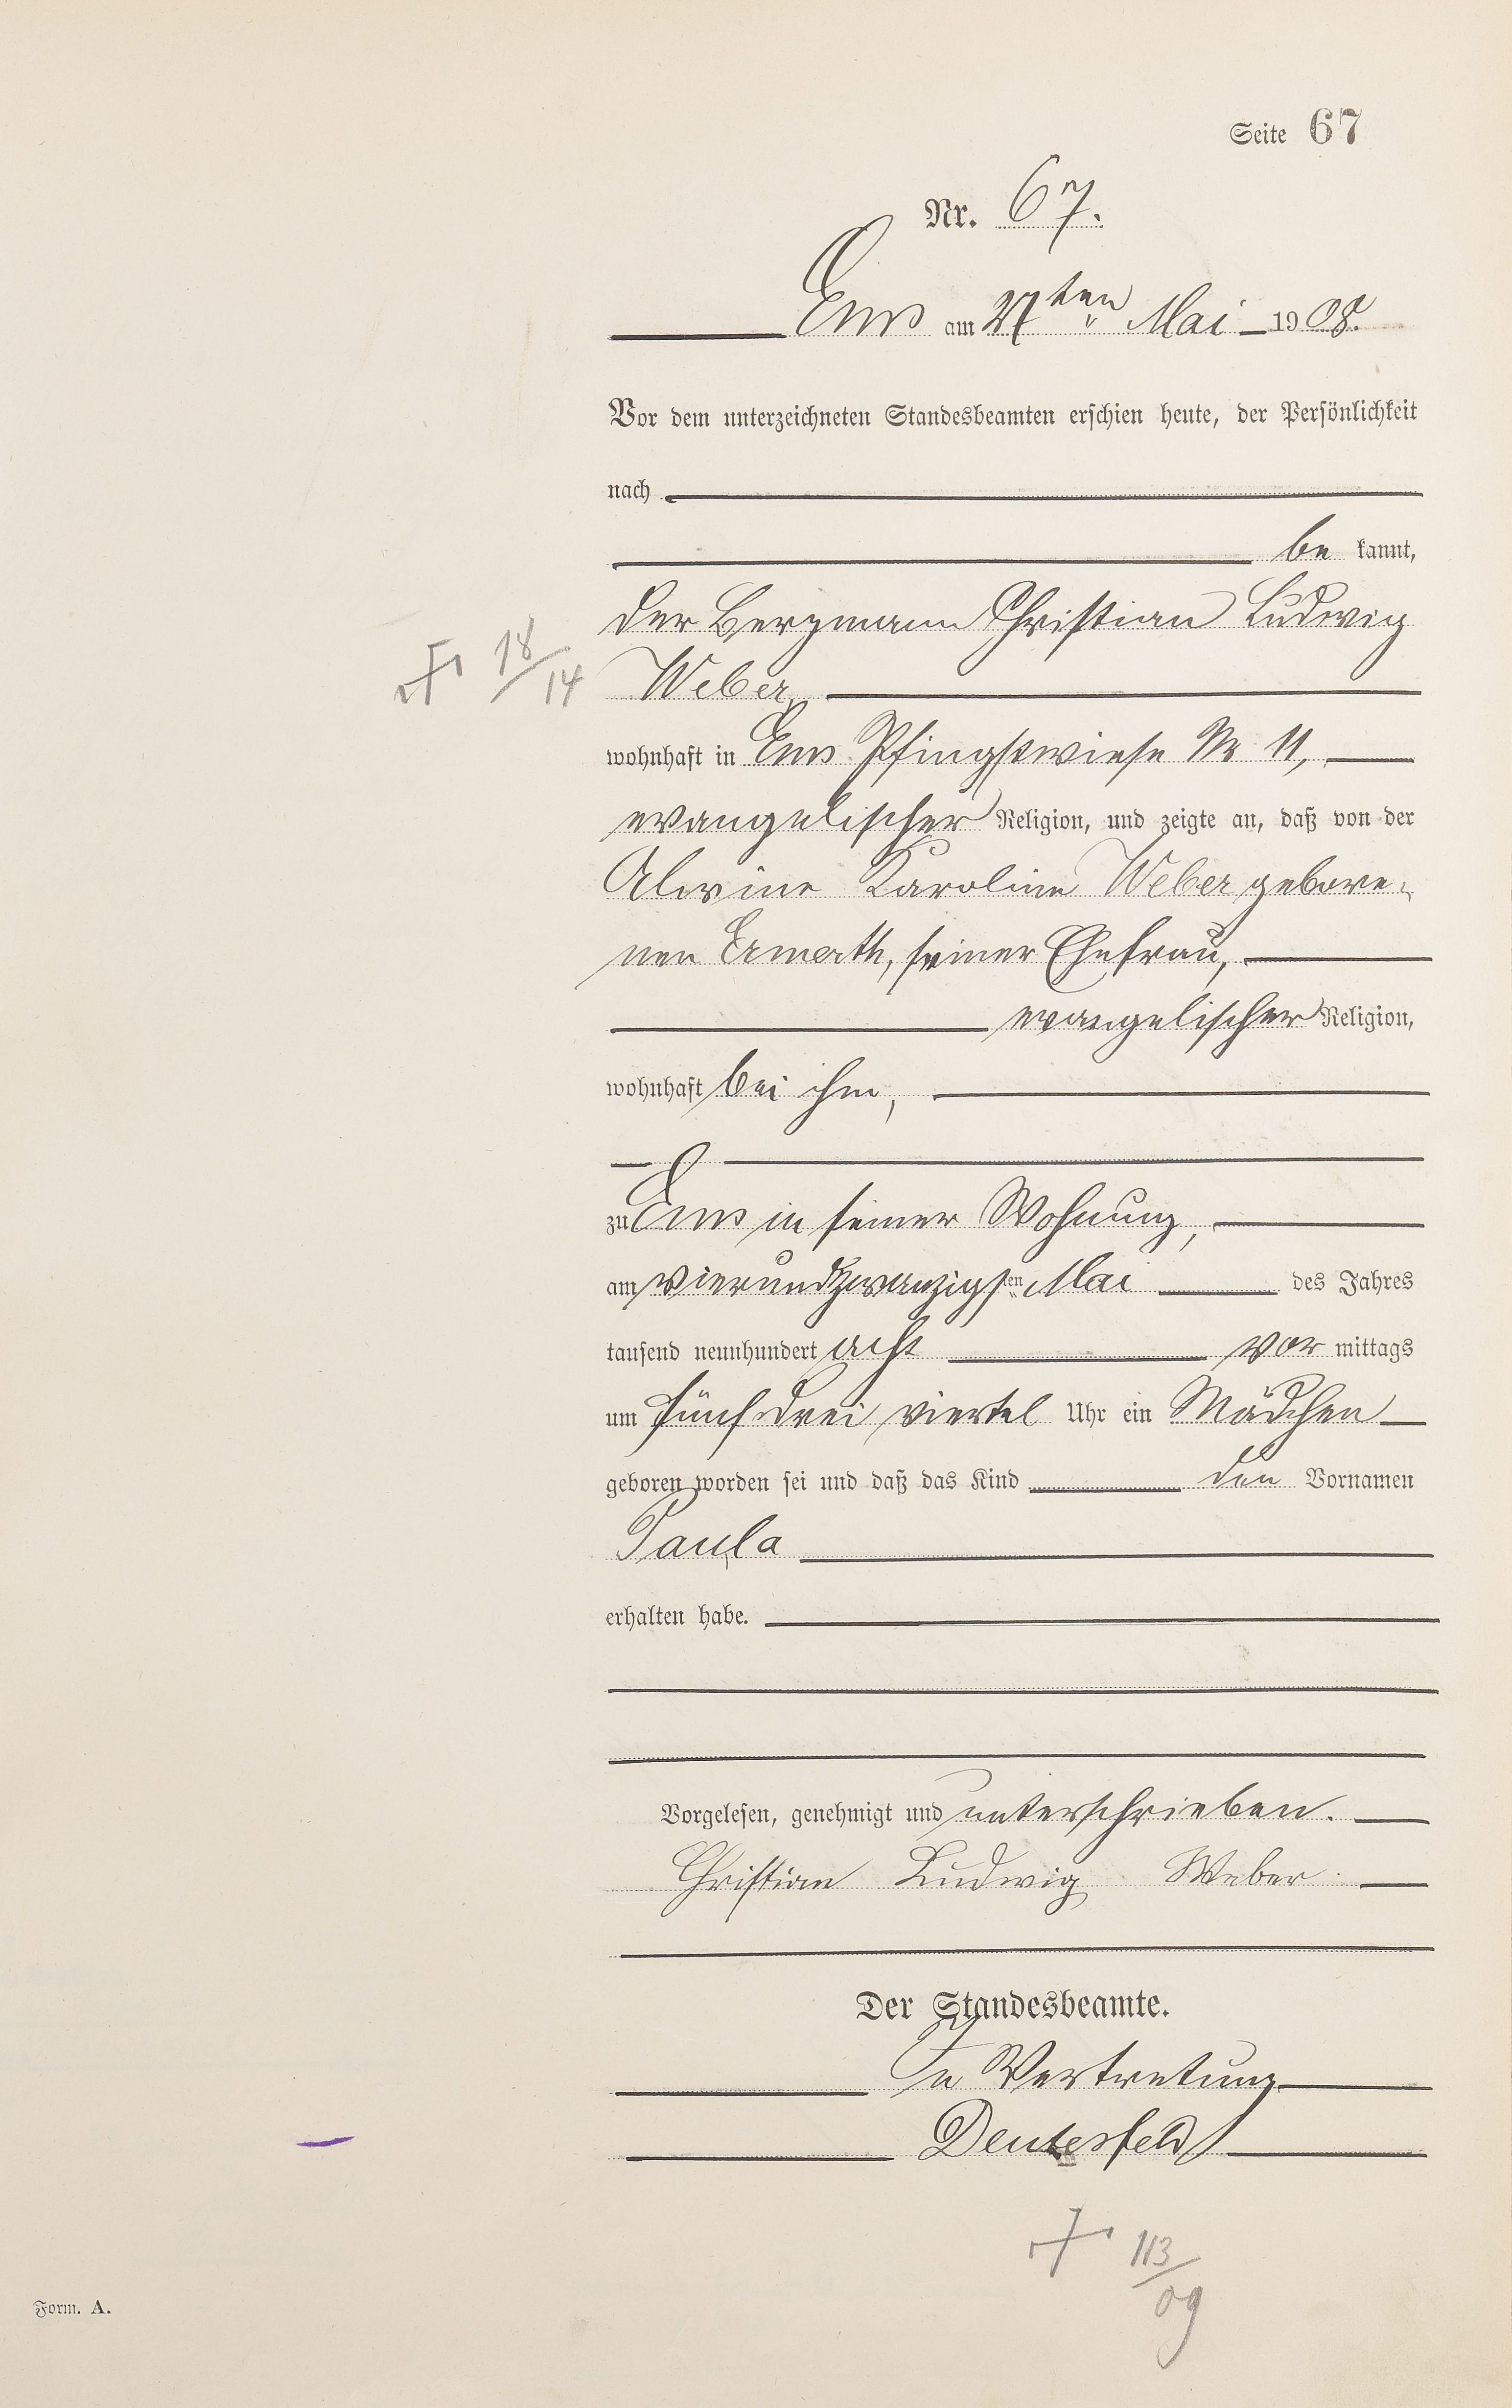 Seite 67
Nr. 67.
Ems am 27ten Mai 1908.
Vor dem unterzeichneten Standesbeamten erschien heute, der Persönlichkeit
nach
be kannt,
der Bergmann Christian Ludwig
+ 18/14
Weber,
wohnhaft in Ems Pfingstwiese Nr 11,
evangelischer Religion, und zeigte an, daß von der
Alwine Karoline Weber gebore-
nen Ermath, seiner Ehefrau,
evangelischer Religion,
wohnhaft bei ihm,
zu Ems in seiner Wohnung,
am vierundzwanzigsten Mai des Jahres
tausend neunhundert acht vor mittags
um fünf drei viertel Uhr ein Mädchen
geboren worden sei und daß das Kind den Vornamen
Paula
erhalten habe.
Vorgelesen, genehmigt und unterschrieben.
Christian Ludwig Weber.
Der Standesbeamte.
In Vertretung
Deutesfeld
+ 113/09
Form. A.